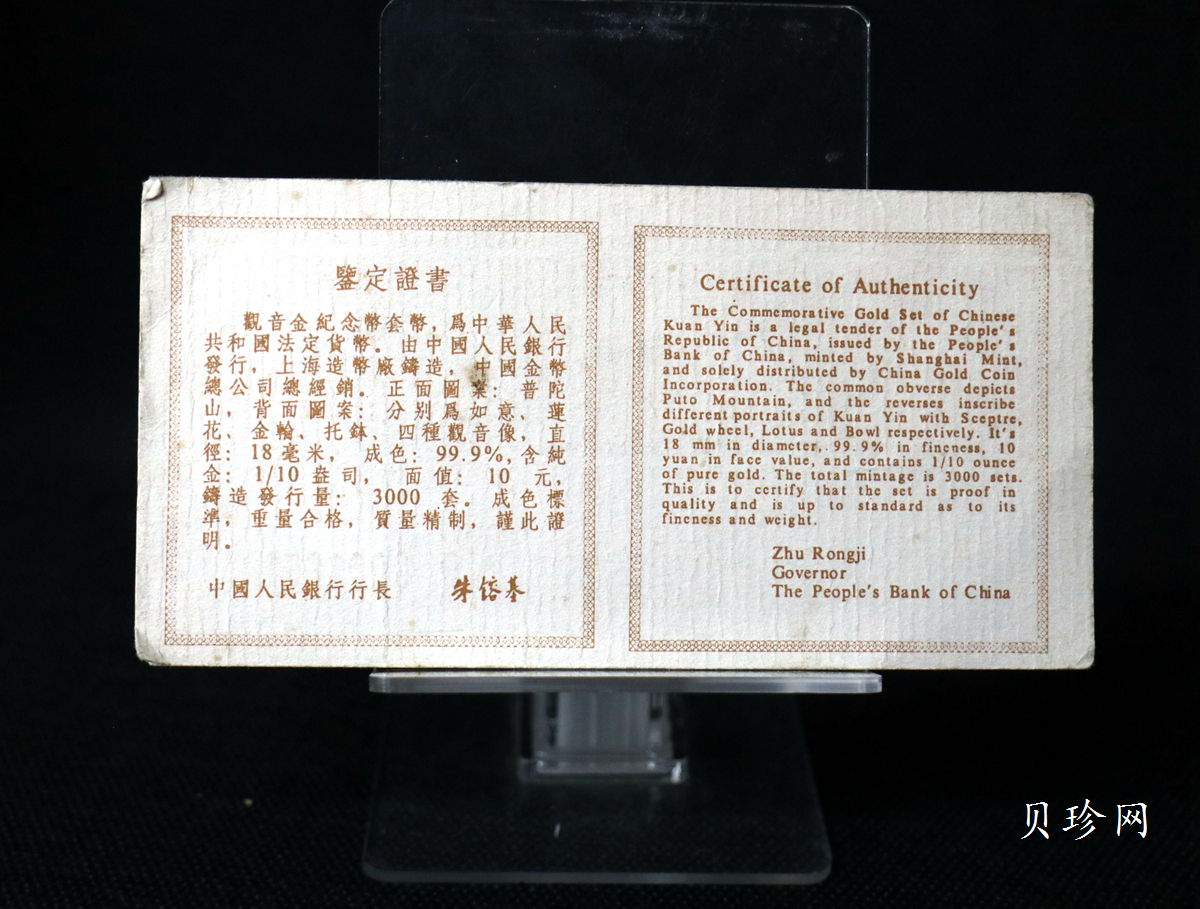 鑒定證書
觀音金紀念幣套幣，爲中華人民
共和國法定貨幣。由中國人民銀行
發行，上海造幣廠鑄造，中國金幣
總公司總經銷。正面圖案：普陀
山，背面圖案：分别爲如意、蓮
花、金輪、托鉢、四種觀音像，直
徑：18毫米，成色：99.9%，含純
金：1/10盎司，面值：10元，
鑄造發行量：3000套。成色標
準，重量合格，質量精制，謹此證
明。
中國人民銀行行長 朱鎔基
Certificate of Authenticity
The Commemorative Gold Set of Chinese
Kuan Yin is a legal tender of the People's
Republic of China, issued by the People's
Bank of China, minted by Shanghai Mint,
and solely distributed by China Gold Coin
Incorporation. The common obverse depicts
Puto Mountain, and the reverses inscribe
different portraits of Kuan Yin with Sceptre,
Gold wheel, Lotus and Bowl respectively. It's
18 mm in diameter, 99.9% in fineness, 10
yuan in face value, and contains 1/10 ounce
of pure gold. The total mintage is 3000 sets.
This is to certify that the set is proof in
quality and is up to standard as to its
fineness and weight.
Zhu Rongji
Governor
The People's Bank of China
贝珍网